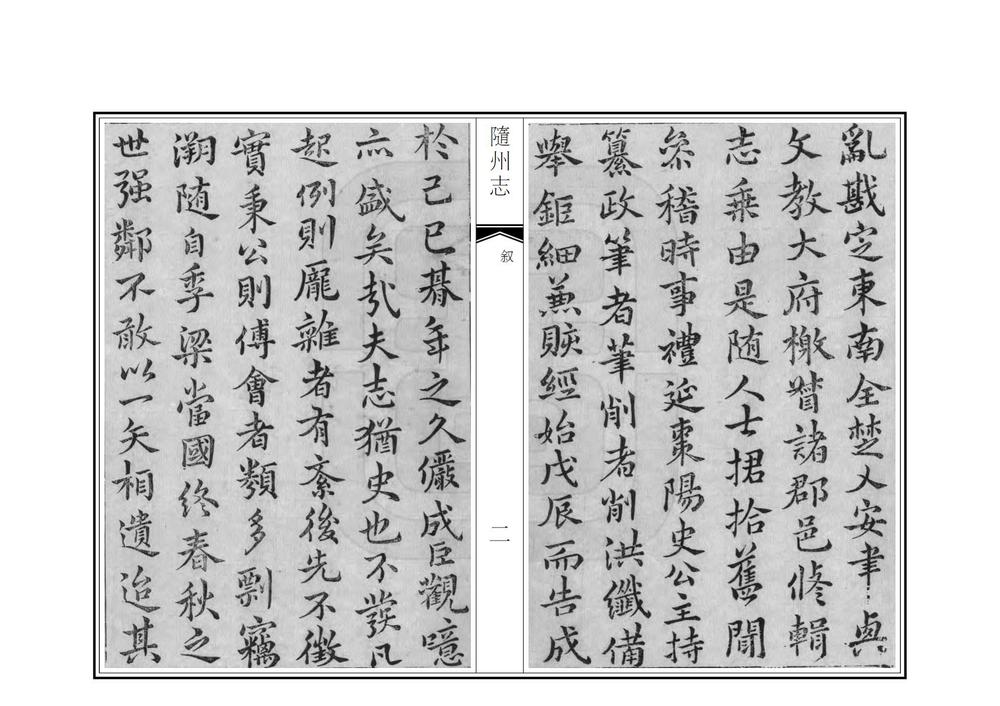 亂戡定東南全楚乂安聿興
文教大府檄督諸郡邑修輯
志乗由是随人士捃拾舊聞
叅稽時事禮延棗陽史公主持
纂政筆者筆削者削洪纖備
舉鉅細兼賅經始戊辰而告成
隨州志
叙
二
扵己巳碁年之久儼成臣觀噫
亦盛矣㢤夫志猶史也不發凡
起例則龎雜者有紊後先不徵
實秉公則傅會者類多剽竊
溯随自季梁當國終春秋之
世强鄰不敢以一矢相遺迨其